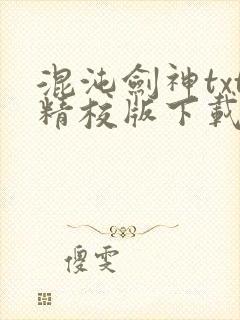 混沌劍神txt
精校版下載
傻雯